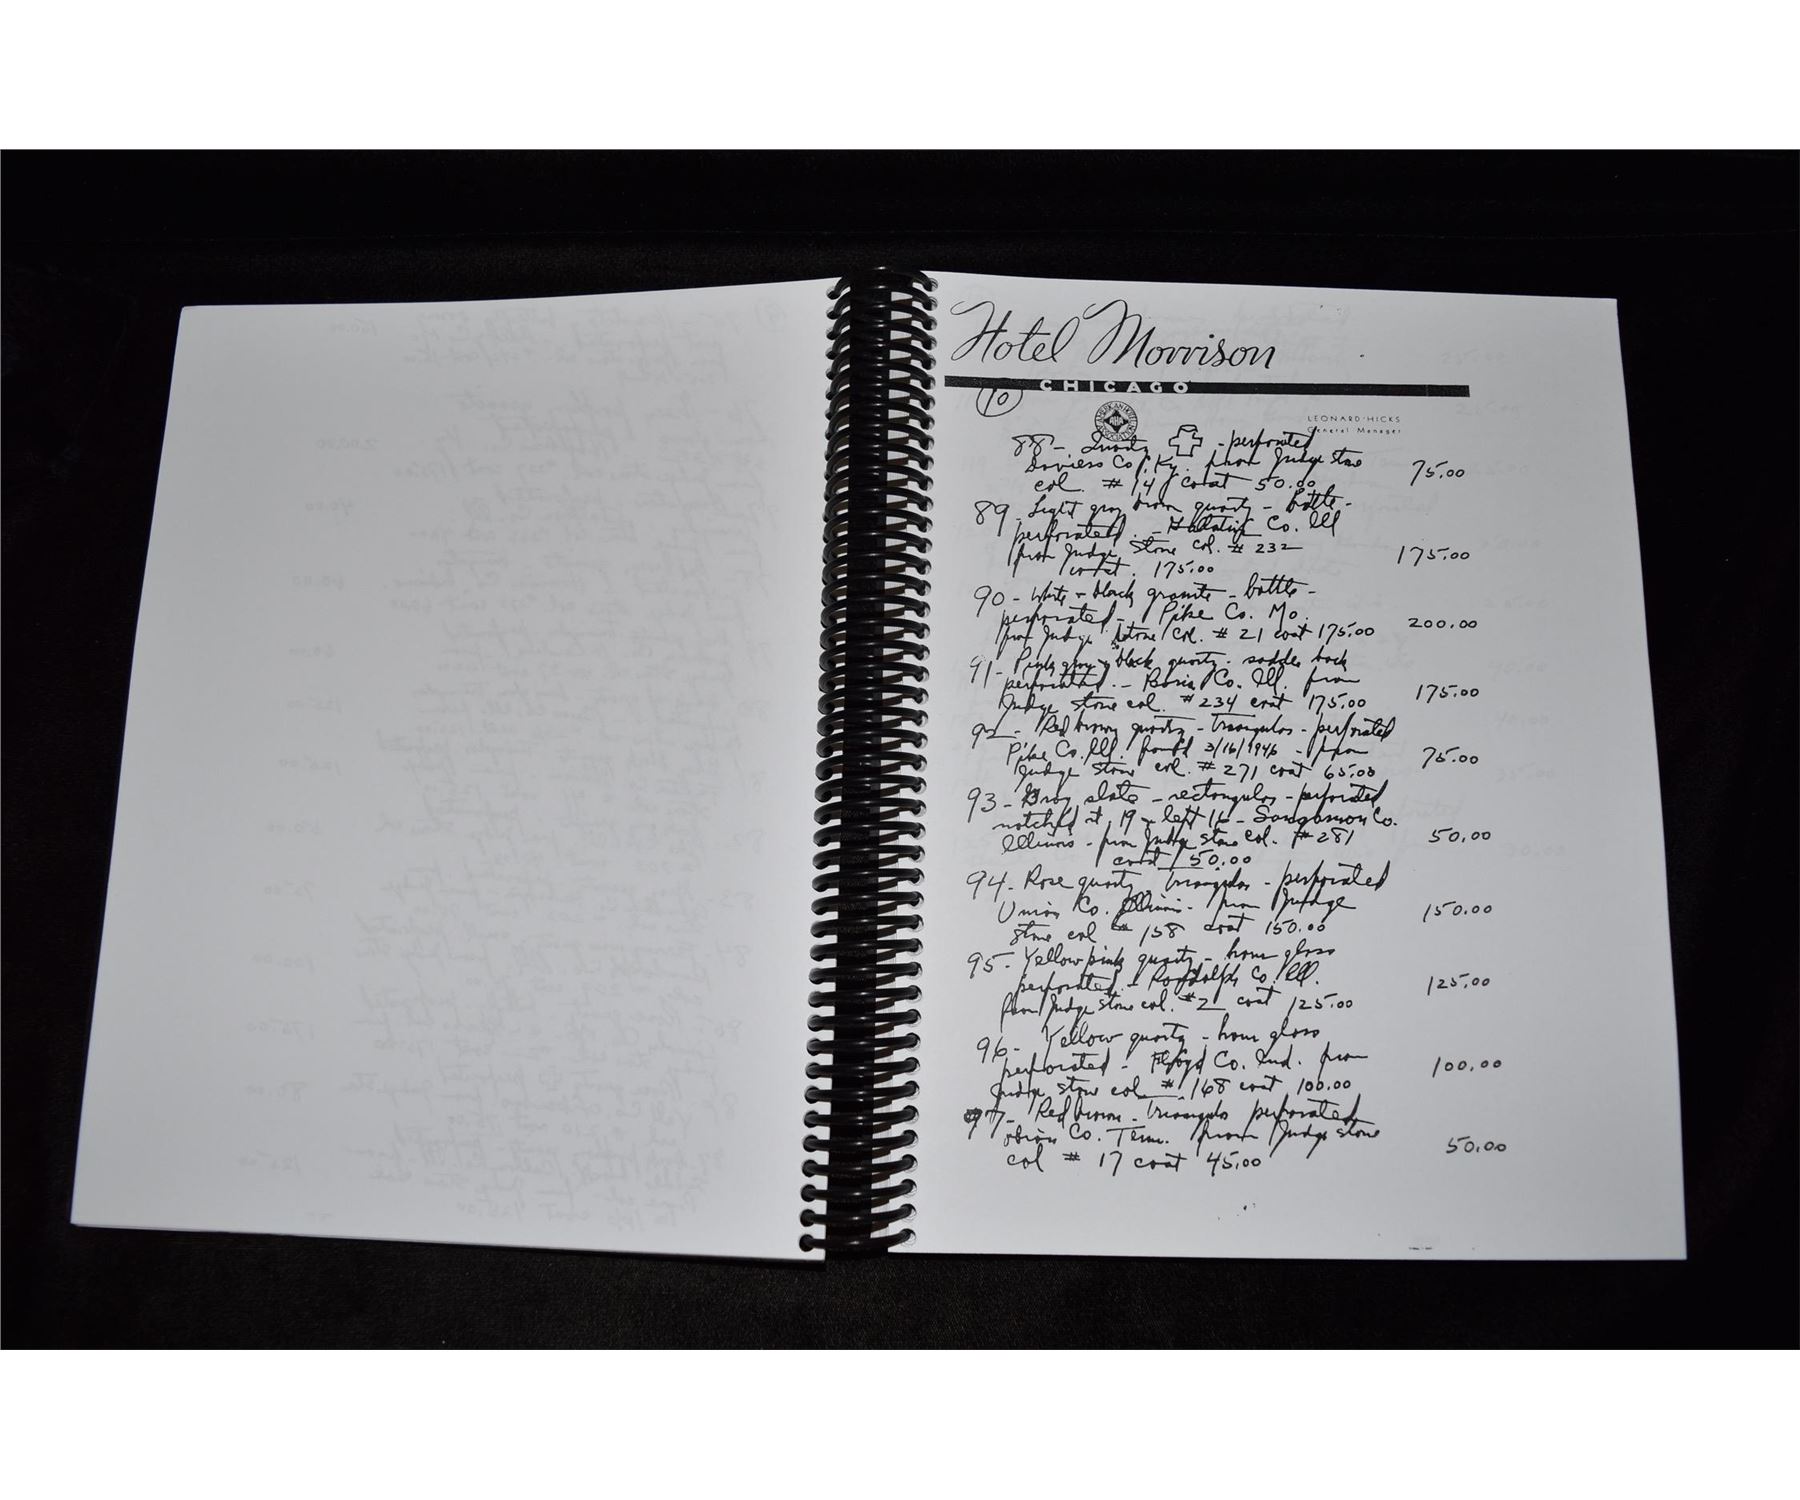 Hotel Morrison
CHICAGO
10
LEONARD HICKS
General Manager
88 - Quartz - perforated
Daviess Co. Ky. from Judge Stone
col. # 14 cost 50.00 75.00
89 - Light gray brown quartz - bottle -
perforated - Gallatin Co. Ill
from Judge Stone Col. # 232
cost. 175.00 175.00
90 - White & black granite - bottle -
perforated - Pike Co. Mo.
from Judge Stone Col. # 21 cost 175.00 200.00
91 - Pink gray & black quartz - saddle back
perforated. - Peoria Co. Ill. from
Judge Stone col. # 234 cost 175.00 175.00
92 - Red brown quartz - triangular - perforated
Pike Co. Ill. found 3/16/1946 - from
Judge Stone col. # 271 cost 65.00 75.00
93 - Gray slate - rectangular - perforated
notched rt 19 - left 16 - Sangamon Co.
Illinois - from Judge Stone Col. # 281
cost 50.00 50.00
94 - Rose quartz triangular - perforated
Union Co. Illinois - from Judge
Stone col # 158 cost 150.00 150.00
95 - Yellow pink quartz - hour glass
perforated. - Randolph Co. Ill.
from Judge Stone col. # 2 cost 125.00 125.00
96 - Yellow quartz - hour glass
perforated - Floyd Co. Ind. from
Judge Stone col # 168 cost 100.00 100.00
97 - Red brown - triangular perforated
Obion Co. Tenn. from Judge Stone
col # 17 cost 45.00 50.00